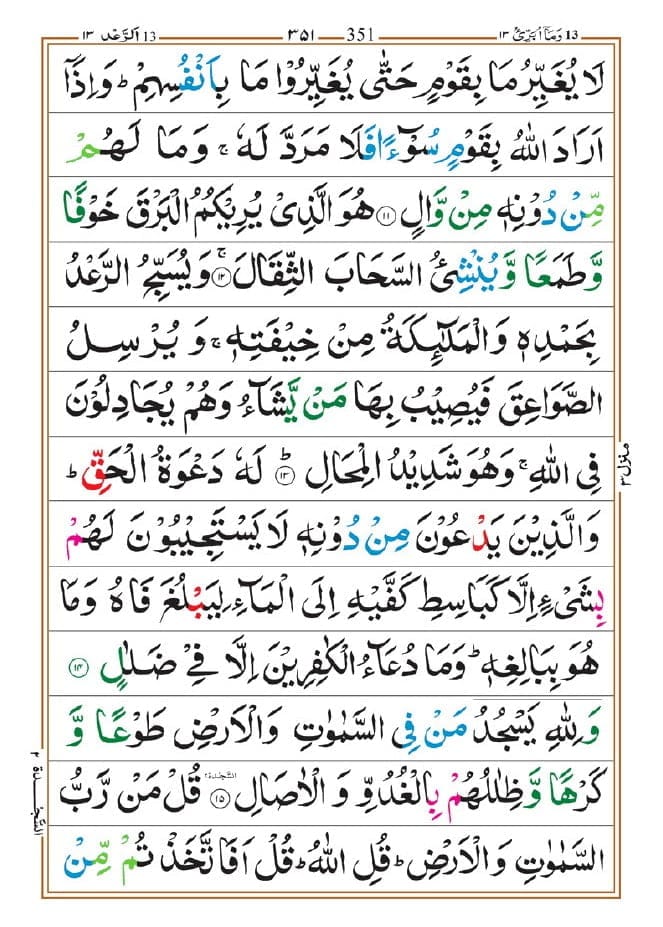 ١٣ اَلرَّعْد 13 ٣٥١ 351 وَمَاۤ اُبَرِّئُ ١٣ 13
لَا یُغَیِّرُ مَا بِقَوْمٍ حَتّٰی یُغَیِّرُوْا مَا بِاَنْفُسِهِمْ ؕ وَاِذَاۤ
اَرَادَ اللّٰهُ بِقَوْمٍ سُوْٓءًا فَلَا مَرَدَّ لَهٗ ۚ وَمَا لَهُمْ
مِّنْ دُوْنِهٖ مِنْ وَّالٍ ۝۱۱ هُوَ الَّذِیْ یُرِیْكُمُ الْبَرْقَ خَوْفًا
وَّطَمَعًا وَّیُنْشِئُ السَّحَابَ الثِّقَالَ ۝۱۲ۚ وَیُسَبِّحُ الرَّعْدُ
بِحَمْدِهٖ وَالْمَلٰٓئِكَةُ مِنْ خِیْفَتِهٖ ۚ وَیُرْسِلُ
الصَّوَاعِقَ فَیُصِیْبُ بِهَا مَنْ یَّشَآءُ وَهُمْ یُجَادِلُوْنَ
فِی اللّٰهِ ۚ وَهُوَ شَدِیْدُ الْمِحَالِ ۝۱۳ؕ لَهٗ دَعْوَةُ الْحَقِّ ؕ
وَالَّذِیْنَ یَدْعُوْنَ مِنْ دُوْنِهٖ لَا یَسْتَجِیْبُوْنَ لَهُمْ
بِشَیْءٍ اِلَّا كَبَاسِطِ كَفَّیْهِ اِلَی الْمَآءِ لِیَبْلُغَ فَاهُ وَمَا
هُوَ بِبَالِغِهٖ ؕ وَمَا دُعَآءُ الْكٰفِرِیْنَ اِلَّا فِیْ ضَلٰلٍ ۝۱۴
وَلِلّٰهِ یَسْجُدُ مَنْ فِی السَّمٰوٰتِ وَالْاَرْضِ طَوْعًا وَّ
كَرْهًا وَّظِلٰلُهُمْ بِالْغُدُوِّ وَالْاٰصَالِ ۝۱۵ السَّجْدَة قُلْ مَنْ رَّبُّ
السَّمٰوٰتِ وَالْاَرْضِ ؕ قُلِ اللّٰهُ ؕ قُلْ اَفَاتَّخَذْتُمْ مِّنْ
منزل ٣
السَّجْدَة ٢